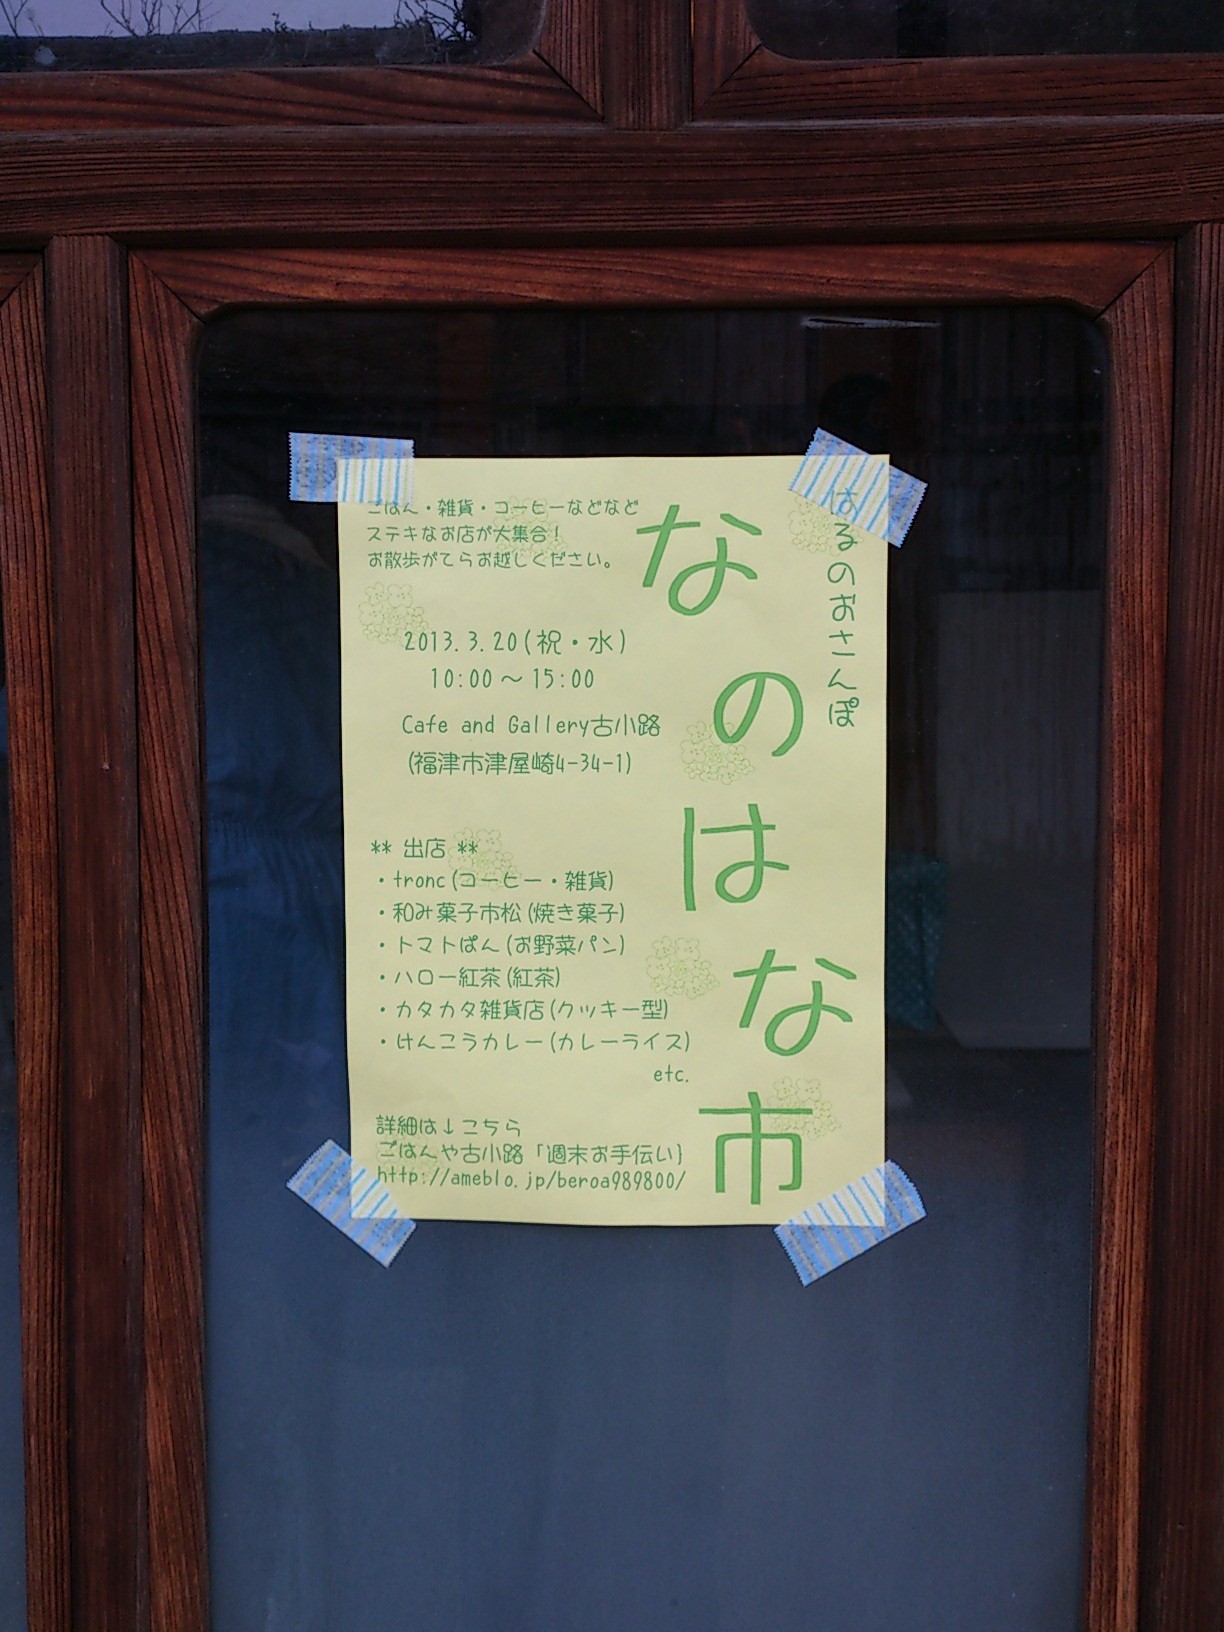 はるのおさんぽ
なのはな市
ごはん・雑貨・コーヒーなどなど
ステキなお店が大集合!
お散歩がてらお越しください。
2013.3.20(祝・水)
10:00～15:00
Cafe and Gallery古小路
(福津市津屋崎4-34-1)
** 出店 **
・tronc(コーヒー・雑貨)
・和み菓子市松(焼き菓子)
・トマトぱん(お野菜パン)
・ハロー紅茶(紅茶)
・カタカタ雑貨店(クッキー型)
・けんこうカレー(カレーライス)
etc.
詳細は↓こちら
ごはんや古小路「週末お手伝い}
http://ameblo.jp/beroa989800/